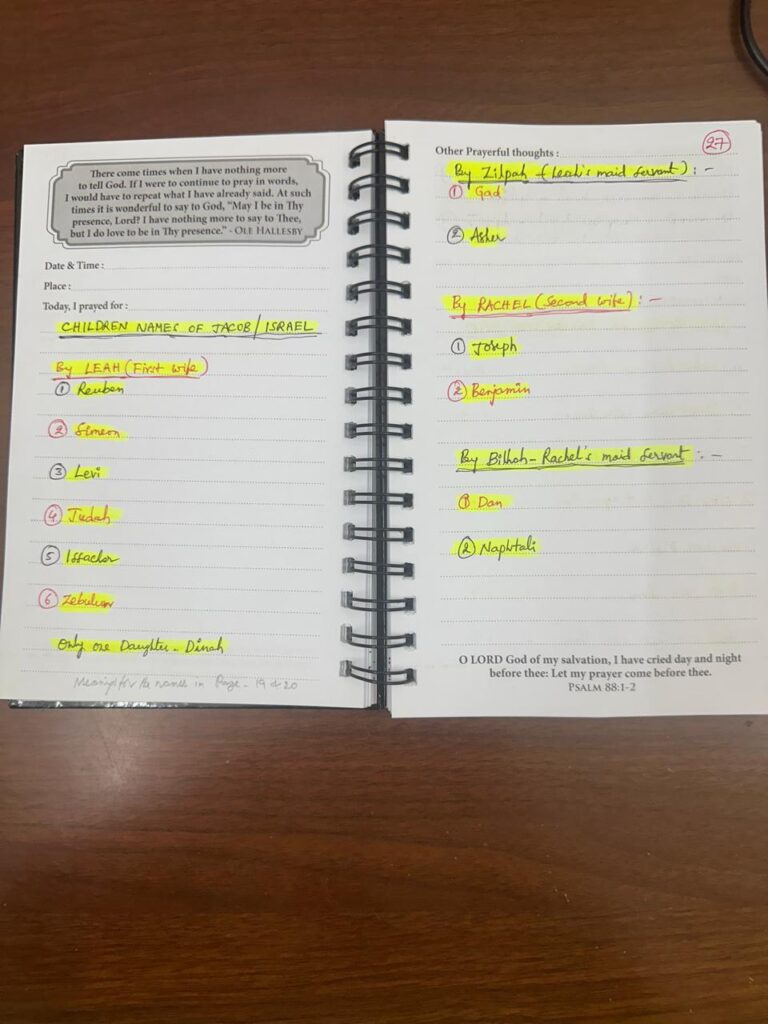 There come times when I have nothing more
to tell God. If I were to continue to pray in words,
I would have to repeat what I have already said. At such
times it is wonderful to say to God, "May I be in Thy
presence, Lord? I have nothing more to say to Thee,
but I do love to be in Thy presence." - OLE HALLESBY
Date & Time :
Place :
Today, I prayed for :
CHILDREN NAMES OF JACOB/ISRAEL
By LEAH (First wife)
① Reuben
② Simeon
③ Levi
④ Judah
⑤ Issachar
⑥ Zebulun
Only one Daughter - Dinah
Meanings for the names in Page - 19 & 20
27
Other Prayerful thoughts :
By Zilpah (Leah's maid servant) : -
① Gad
② Asher
By RACHEL (Second wife) : -
① Joseph
② Benjamin
By Bilhah - Rachel's maid servant : -
① Dan
② Naphtali
O LORD God of my salvation, I have cried day and night
before thee: Let my prayer come before thee.
PSALM 88:1-2